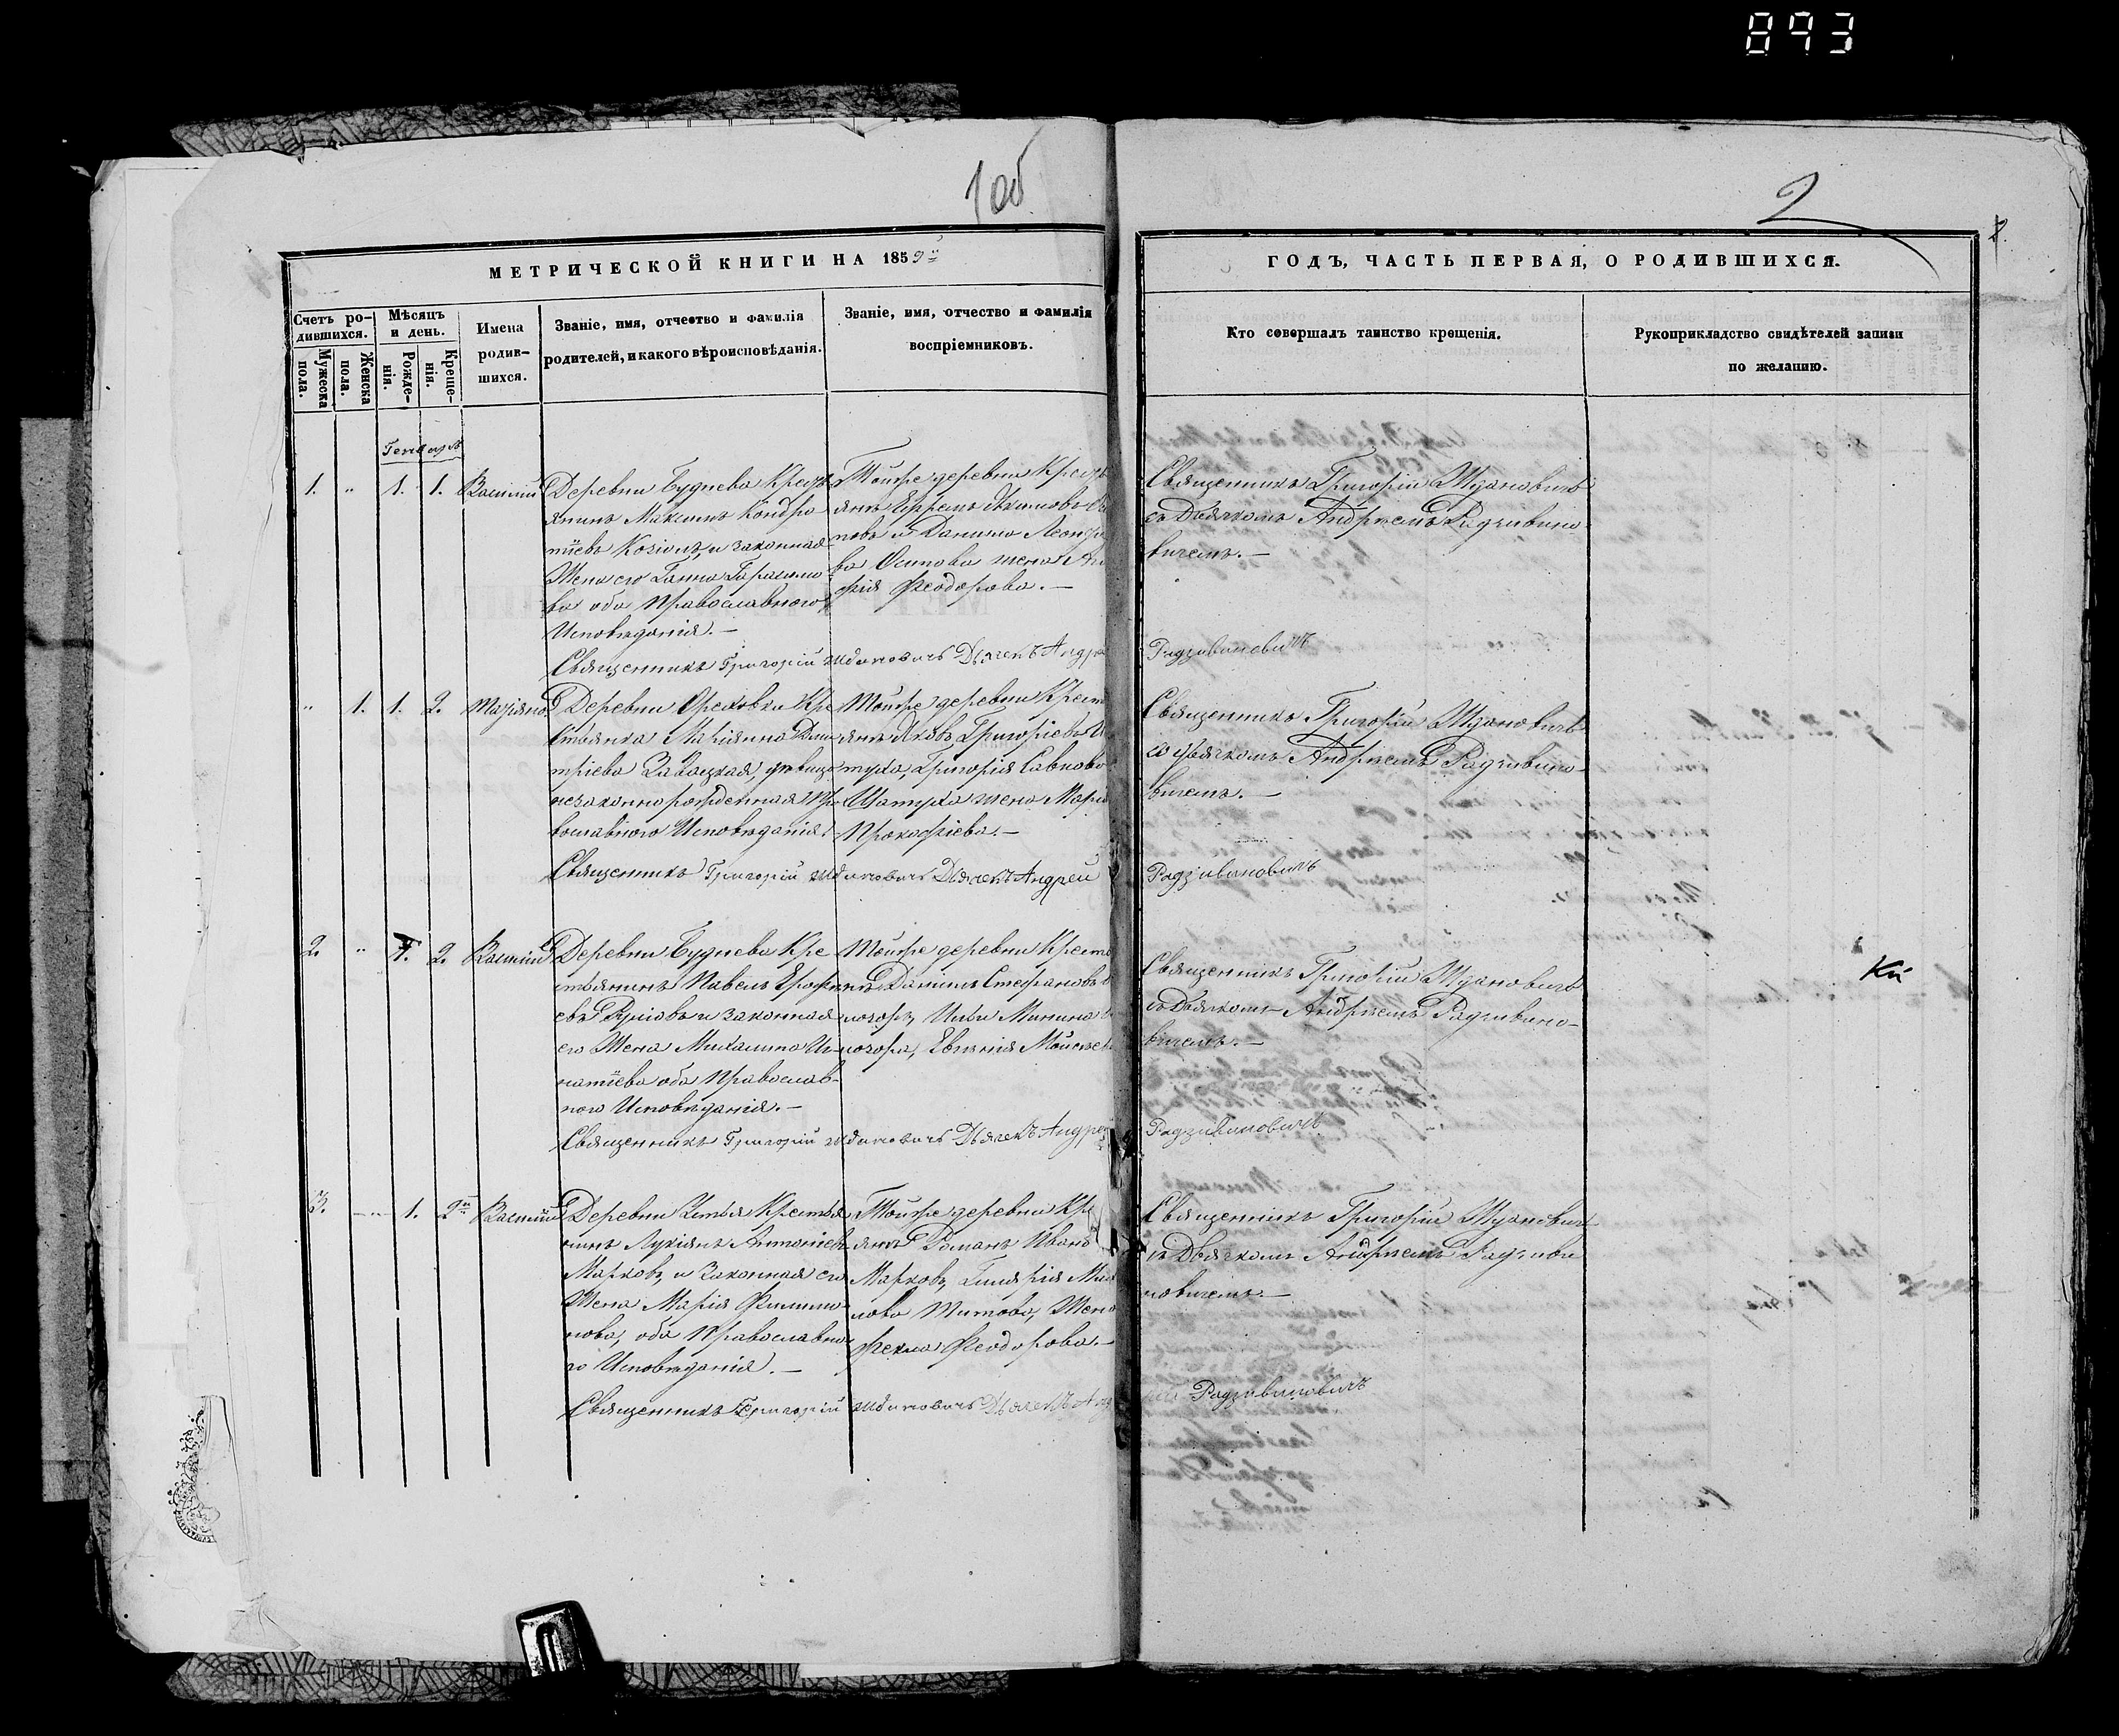 893
1об
2
МЕТРИЧЕСКОЙ КНИГИ НА 1859й
ГОДЪ, ЧАСТЬ ПЕРВАЯ, О РОДИВШИХСЯ.
Счетъ ро-
дившихся.
Мужеска
пола.
Женска
пола.
Мѣсяцъ
и день.
Рожде-
нія.
Креще-
нія.
Имена
родив-
шихся.
Званіе, имя, отчество и фамилія
родителей, и какого вѣроисповѣданія.
Званіе, имя, отчество и фамилія
воспріемниковъ.
Кто совершалъ таинство крещенія.
Рукоприкладство свидѣтелей записи
по желанію.
Генварь
1. " 1. 1. Василій
Деревни Буднева Крестъ
янинъ Максимъ Кондра
тіевъ и законная
Жена его Ганна Гарасимо
ва оба Православного
Исповѣданія.—
Тойже деревни Крест
янъ Ефремъ Якимовъ
новъ и Данила Леон
ва Осипова жена
фія Феодорова.—
Священникъ Григорій Ждановичъ
съ Дьячкомъ Андреемъ Радзивино
вичемъ.—
Священникъ Григорій Ждановичъ Дьячекъ Андре
Радзивиновичъ
" 1. 1. 2. Маріяна
Деревни Ореховки Кре
стьянка Маріянна Дми
тріева Завацкая, дѣвица
незаконнорожденная Пра
вославного Исповѣданія.
Тойже деревни Крест
янъ Яковъ Григоріевъ
Григорія Савкова
жена Мари
Прокофіева.—
Священникъ Григорій Ждановичъ
со дьячкомъ Андреемъ Радзивино
вичемъ.—
Священникъ Григорій Ждановичъ Дьячекъ Андрей
Радзивиновичъ
2. " 1. 2. Василій
Деревни Буднева Кре
стьянинъ Павелъ Ерофе
евъ и законная
его Жена Михалина Иг-
натіева оба Православ-
ного Исповѣданія.—
Тойже деревни Крест
янъ Данила Стефановъ
Ильи Минина
Евгенія Мойсее
Священникъ Григорій Ждановичъ
съ Дьячкомъ Андреемъ Радзивино-
вичемъ.—
Священникъ Григорій Ждановичъ Дьячекъ Андре
Радзивиновичъ
3. — " — 1. 2й Василій
Деревни Устья Крестья
нинъ Лукіянъ Антоніевъ
Марковъ, и Законная его
Жена Марія Филимо-
нова, оба Православно-
го Исповѣданія.—
Тойже деревни Кр
янъ Романъ Ивано
Марковъ,
Титова, Жена
Фекла Феодорова.—
Священникъ Григорій Ждановичъ
съ Дьячкомъ Андреемъ Радзиви
новичемъ.—
Священникъ Григорій Ждановичъ Дьячекъ Анд
Радзивиновичъ